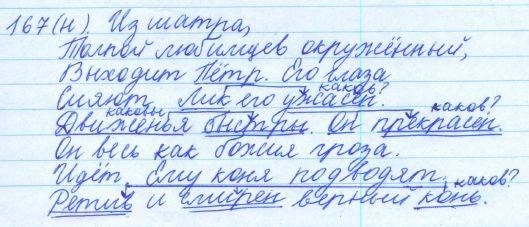 167(н). Из шатра,
Толпой любимцев окружённый,
Выходит Пётр. Его глаза
каков?
Сияют. Лик его ужасен.
каковы каков?
Движенья быстры. Он прекрасен.
Он весь как божия гроза.
Идёт. Ему коня подводят.
каков?
Ретив и смирен верный конь.